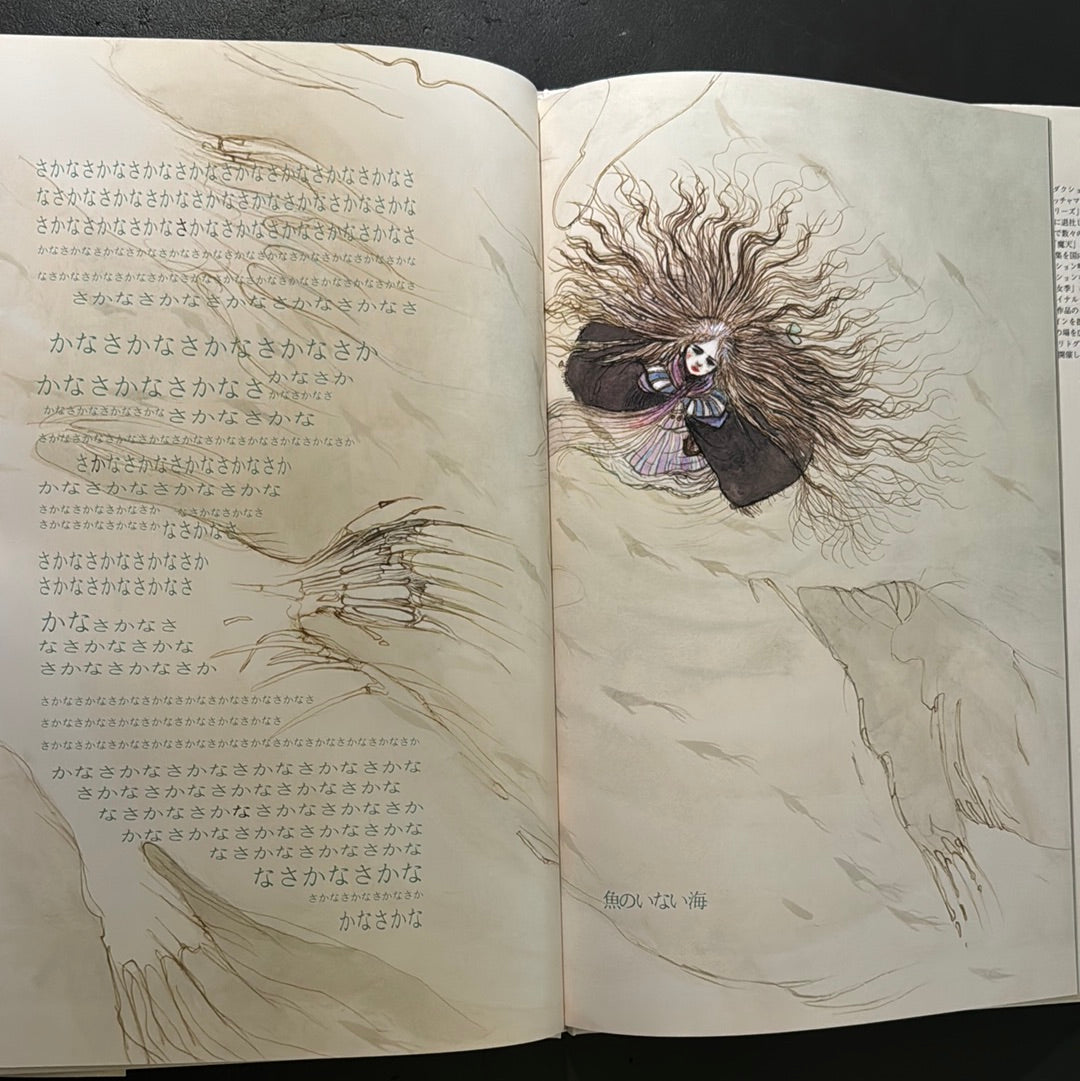 さかなさかなさかなさかなさかなさかなさかなさかなさ
なさかなさかなさかなさかなさかなさかなさかなさかな
さかなさかなさかなさかなさかなさかなさかなさかなさ
かなさかなさかなさかなさかなさかなさかなさかなさかなさかなさかなさかな
なさかなさかなさかなさかなさかなさかなさかなさかなさかなさかなさかなさ
さかなさかなさかなさかなさかなさ
かなさかなさかなさかなさかなさか
かなさかなさかなさかなさか かなさかなさ
かなさかなさかなさかなさかなさかな
さかなさかなさかなさかなさかなさかなさかなさかなさかなさか
さかなさかなさかなさかなさか
かなさかなさかなさかな
さかなさかなさかなさか なさかなさかなさ
さかなさかなさかなさかなさかなさ
さかなさかなさかなさか
さかなさかなさかなさ
かなさかなさ
なさかなさかな
さかなさかなさか
さかなさかなさかなさかなさかなさかなさかなさかなさ
さかなさかなさかなさかなさかなさかなさかなさ
さかなさかなさかなさかなさかなさかなさかなさかなさかなさかなさかなさか
かなさかなさかなさかなさかなさかな
さかなさかなさかなさかなさかな
なさかなさかなさかなさかなさか
かなさかなさかなさかなさかな
なさかなさかなさかな
なさかなさかな
さかなさかなさかなさ
かなさかな
魚のいない海
ダクショ
ッチャマ
リーズ』
に退社し
で数々の
『魔天』
集を国内
ション映
ション
女季』
イナル
作品の
インを担
の場を
リトグ
開催し